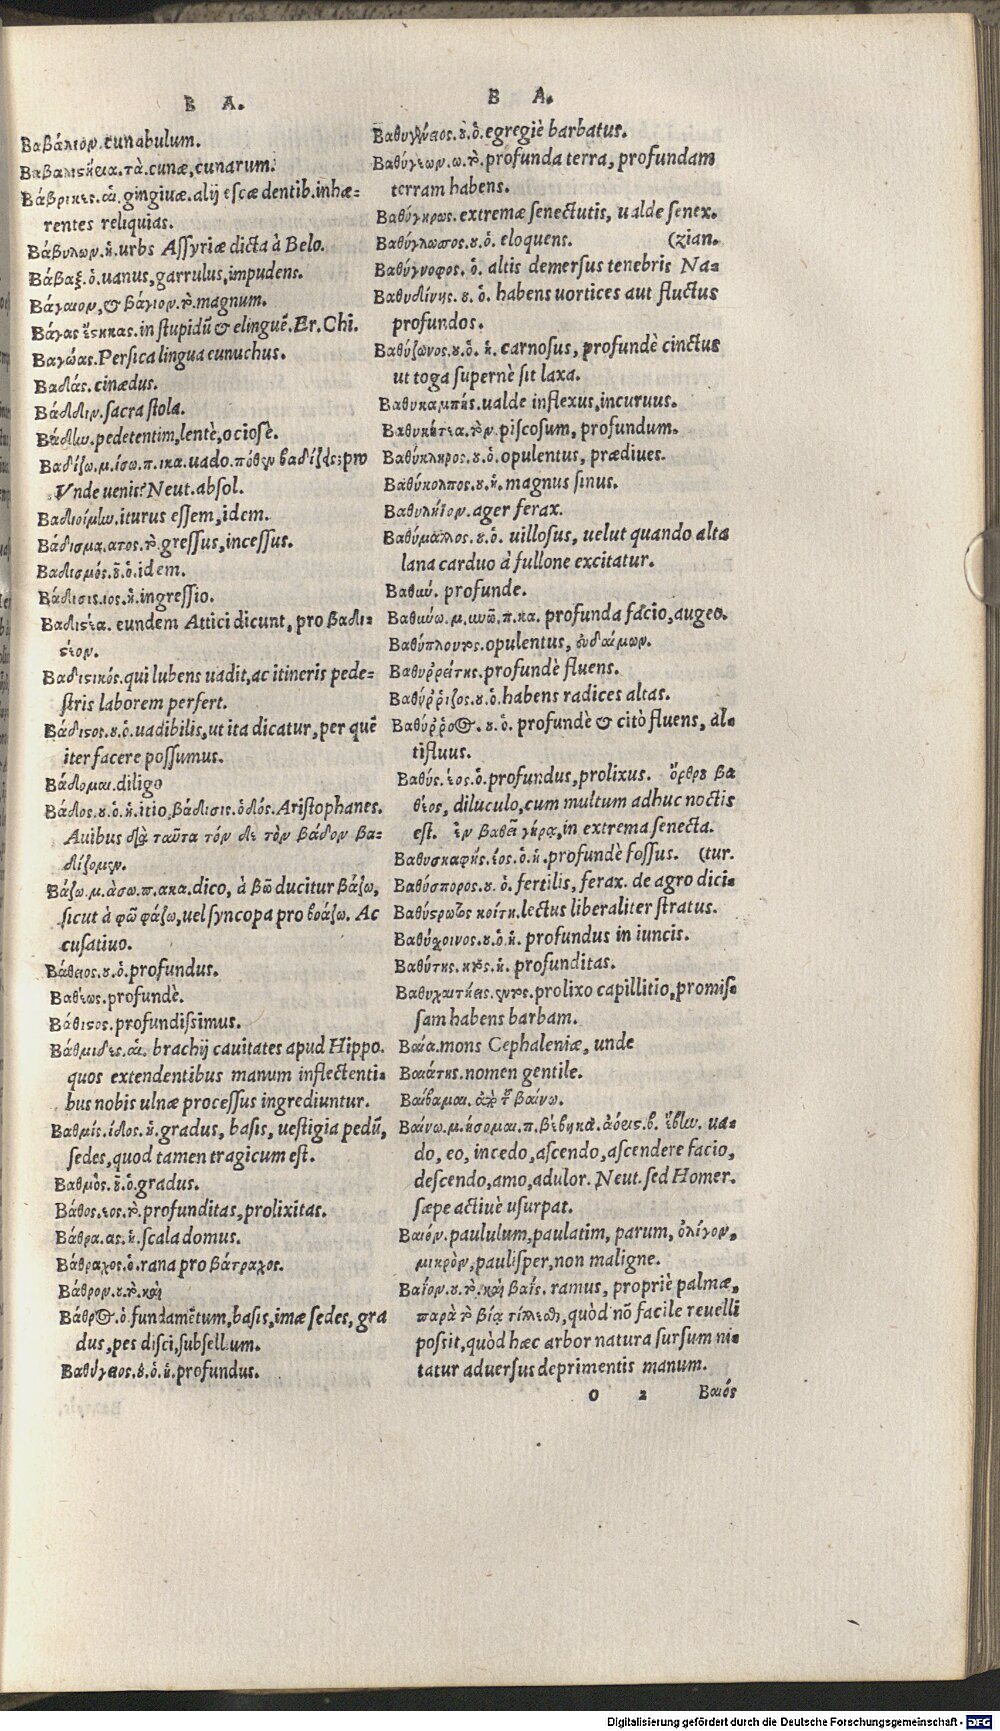 B A.
Βαβάλιον. cunabulum.
Βαβαλιστήεια. τὰ. cunæ, cunarum.
Βάβρικες. αἱ. gingiuæ. alij escæ dentib. inhæ=
rentes reliquias.
Βάβυλων. ἡ. urbs Assyriæ dicta à Belo.
Βάβαξ. ὁ. uanus, garrulus, impudens.
Βάγαιον, & βάγιον. τὸ. magnum.
Βάγας ἕστηκας. in stupidũ & elinguẽ. Er. Chi.
Βαγώας. Persica lingua eunuchus.
Βαδάς. cinædus.
Βάδδιν. sacra stola.
Βάδην. pedetentim, lentè, ociosè.
Βαδίζω. μ. ίσω. π. ικα. uado. πόθεν βαδίζεις; pro
Vnde uenis? Neut. absol.
Βαδιοίμην. iturus essem, idem.
Βάδισμα. ατος. τὸ. gressus, incessus.
Βαδισμός. οῦ. ὁ. idem.
Βάδισις. ιος. ἡ. ingressio.
Βαδιστέα. eundem Attici dicunt, pro βαδι=
στέον.
Βαδιστικός. qui lubens uadit, ac itineris pede=
stris laborem perfert.
Βάδιστος. ου. ὁ. uadibilis, ut ita dicatur, per quẽ
iter facere possumus.
Βάδομαι. diligo
Βάδος. ου. ὁ. ἡ. itio, βάδισις. ὁδός. Aristophanes.
Auibus διὰ ταῦτα τόν δε τὸν βάδον βα=
δίζομεν.
Βάζω. μ. άσω. π. ακα. dico, à βῶ ducitur βάζω,
sicut à φῶ φάζω, uel syncopa pro βοάζω. Ac
cusatiuo.
Βάθειος. ου. ὁ. profundus.
Βαθέως. profundè.
Βάθιστος. profundissimus.
Βάθμιδες. αἱ. brachij cauitates apud Hippo.
quos extendentibus manum inflectenti=
bus nobis ulnæ processus ingrediuntur.
Βαθμίς. ίδος. ἡ. gradus, basis, uestigia pedũ,
sedes, quod tamen tragicum est.
Βαθμὸς. οῦ. ὁ. gradus.
Βάθος. εος. τὸ. profunditas, prolixitas.
Βάθρα. ας. ἡ. scala domus.
Βάθραχος. ὁ. rana pro βάτραχος.
Βάθρον. ου. τὸ. καὶ
Βάθρος. ὁ. fundamẽtum, basis, imæ sedes, gra
dus, pes disci, subsellium.
Βαθύγειος. ου. ὁ. ἡ. profundus.
B A.
Βαθυγένειος. ου. ὁ. egregiè barbatus.
Βαθύγεων. ω. τὸ. profunda terra, profundam
terram habens.
Βαθύγηρως. extremæ senectutis, ualde senex.
Βαθύγλωσσος. ου. ὁ. eloquens. (zian.
Βαθύγνοφος. ὁ. altis demersus tenebris Na=
Βαθυδίνης. ου. ὁ. habens uortices aut fluctus
profundos.
Βαθύζωνος. ου. ὁ. ἡ. carnosus, profundè cinctus
ut toga supernè sit laxa.
Βαθυκαμπής. ualde inflexus, incuruus.
Βαθυκήτεα. τὸν. piscosum, profundum.
Βαθύκληρος. ου. ὁ. opulentus, prædiues.
Βαθύκολπος. ου. ἡ. magnus sinus.
Βαθυλήϊον. ager ferax.
Βαθύμαλλος. ου. ὁ. uillosus, uelut quando alta
lana carduo à fullone excitatur.
Βαθαύ. profunde.
Βαθαύω. μ. αυῶ. π. κα. profunda facio, augeo.
Βαθύπλουτος. opulentus, εὐδαίμων.
Βαθυῤῥείτης. profundè fluens.
Βαθύῤῥιζος. ου. ὁ. habens radices altas.
Βαθύῤῥοος. ου. ὁ. profundè & citò fluens, al=
tifluus.
Βαθύς. έος. ὁ. profundus, prolixus. ὄρθρου βα
θέος, diluculo, cum multum adhuc noctis
est. ἐν βαθεῖ γήρᾳ, in extrema senecta.
Βαθυσκαφής. έος. ὁ. ἡ. profundè fossus. (tur.
Βαθύσπορος. ου. ὁ. fertilis, ferax. de agro dici=
Βαθύστρωτος κοίτη. lectus liberaliter stratus.
Βαθύχοινος. ου. ὁ. ἡ. profundus in iuncis.
Βαθύτης. ητος. ἡ. profunditas.
Βαθυχαιτήεις. εντος. prolixo capillitio, promis=
sam habens barbam.
Βαία. mons Cephaleniæ, unde
Βαιάτης. nomen gentile.
Βαίβαμαι. ἀπὸ τοῦ βαίνω.
Βαίνω. μ. ήσομαι. π. βέβηκα. ἀόρις. β. ἔβην. ua=
do, eo, incedo, ascendo, ascendere facio,
descendo, amo, adulor. Neut. sed Homer.
sæpe actiuè usurpat.
Βαιόν. paululum, paulatim, parum, ὀλίγον,
μικρὸν, paulisper, non maligne.
Βαΐον. ου. τὸ. καὶ βαΐς. ramus, propriè palmæ,
παρὰ τὸ βίᾳ τίλλεσθαι, quòd nõ facile reuelli
possit, quòd hæc arbor natura sursum ni=
tatur aduersus deprimentis manum.
o 2 Βαιός
Digitalisierung gefördert durch die Deutsche Forschungsgemeinschaft - DFG